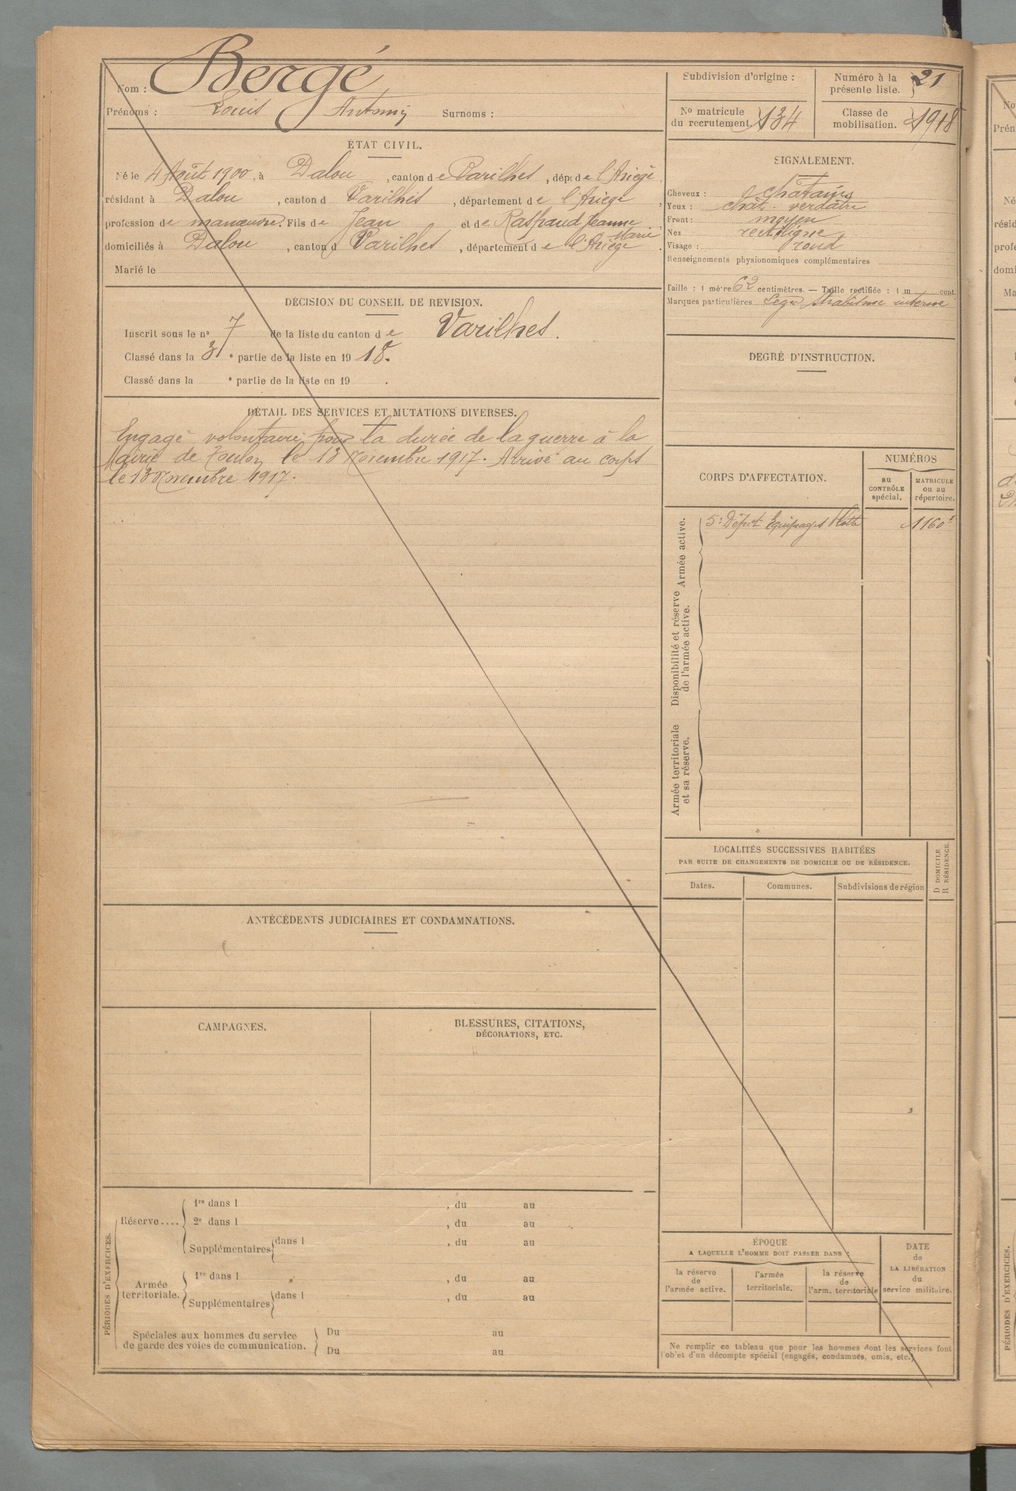 Nom : Bergé
Prénoms : Louis Antonin Surnoms :
Subdivision d'origine :
Numéro à la présente liste. 21
No matricule du recrutement 134
Classe de mobilisation. 1918
ÉTAT CIVIL.
Né le 4 Août 1900, à Dalou, canton de Varilhes, dép. de l'Ariège
résidant à Dalou, canton d Varilhes, département de l'Ariège
profession de manœuvre. Fils de Jean et de Raspaud Jeanne Marie
domiciliés à Dalou, canton d Varilhes, département de l'Ariège.
Marié le
SIGNALEMENT.
Cheveux : chatains
Yeux : chat. verdatre
Front : moyen
Nez rectiligne
Visage : rond
Renseignements physionomiques complémentaires
Taille : 1 mètre 62 centimètres. — Taille rectifiée : 1 m cent.
Marques particulières Léger strabisme interne
DÉCISION DU CONSEIL DE REVISION.
Inscrit sous le no 7 de la liste du canton de Varilhes.
Classé dans la 3e partie de la liste en 1918.
Classé dans la e partie de la liste en 19 .
DEGRÉ D'INSTRUCTION.
DÉTAIL DES SERVICES ET MUTATIONS DIVERSES.
Engagé volontaire pour la durée de la guerre à la
Mairie de Toulon le 13 Novembre 1917. Arrivé au corps
le 13 Novembre 1917.
CORPS D'AFFECTATION.
NUMÉROS
au CONTRÔLE spécial.
MATRICULE ou au répertoire.
Armée active.
5e Dépôt Equipages Flotte 1160
Disponibilité et réserve de l'armée active.
Armée territoriale et sa réserve.
LOCALITÉS SUCCESSIVES HABITÉES
PAR SUITE DE CHANGEMENTS DE DOMICILE OU DE RÉSIDENCE.
D DOMICILE
R RÉSIDENCE.
Dates. Communes. Subdivisions de région
ANTÉCÉDENTS JUDICIAIRES ET CONDAMNATIONS.
CAMPAGNES.
BLESSURES, CITATIONS,
DÉCORATIONS, ETC.
PÉRIODES D'EXERCICES.
Réserve....
1re dans l , du au
2e dans l , du au
Supplémentaires dans l , du au
Armée territoriale.
1re dans l , du au
Supplémentaires dans l , du au
Spéciales aux hommes du service
de garde des voies de communication.
Du au
Du au
ÉPOQUE
A LAQUELLE L'HOMME DOIT PASSER DANS :
la réserve de l'armée active.
l'armée territoriale.
la réserve de l'arm. territoriale
DATE
de
LA LIBÉRATION
du
service militaire.
Ne remplir ce tableau que pour les hommes dont les services font
l'objet d'un décompte spécial (engagés, condamnés, omis, etc.)